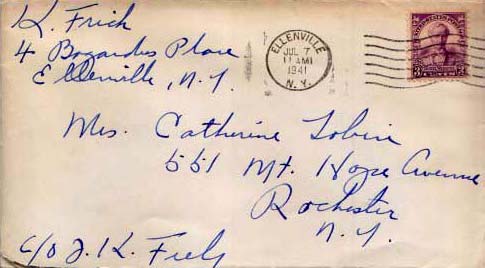 K. Frich
4 Bogardus Place
Ellenville, N.Y.
ELLENVILLE
JUL 7
11 AM
1941
N.Y.
3
Mrs. Catherine Tobin
551 Mt. Hope Avenue
Rochester
N.Y.
c/o J. K.